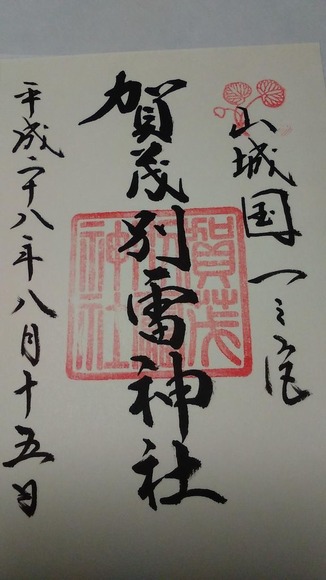 山城国一之宮
賀茂別雷神社
平成二十八年八月十五日
賀茂
神社